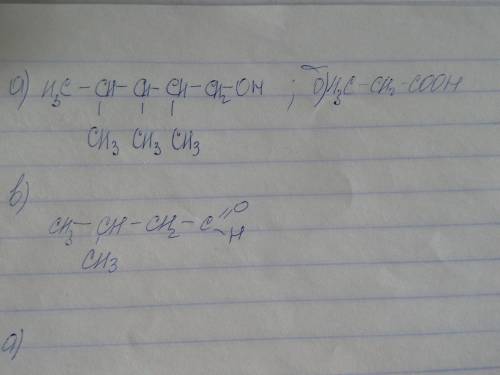 а) H₃C – CH – CH – CH – CH₂ – OH ; б) H₃C – CH₂ – COOH
CH₃ CH₃ CH₃
в)
CH₃ – CH – CH₂ – C =O
– H
CH₃
а)